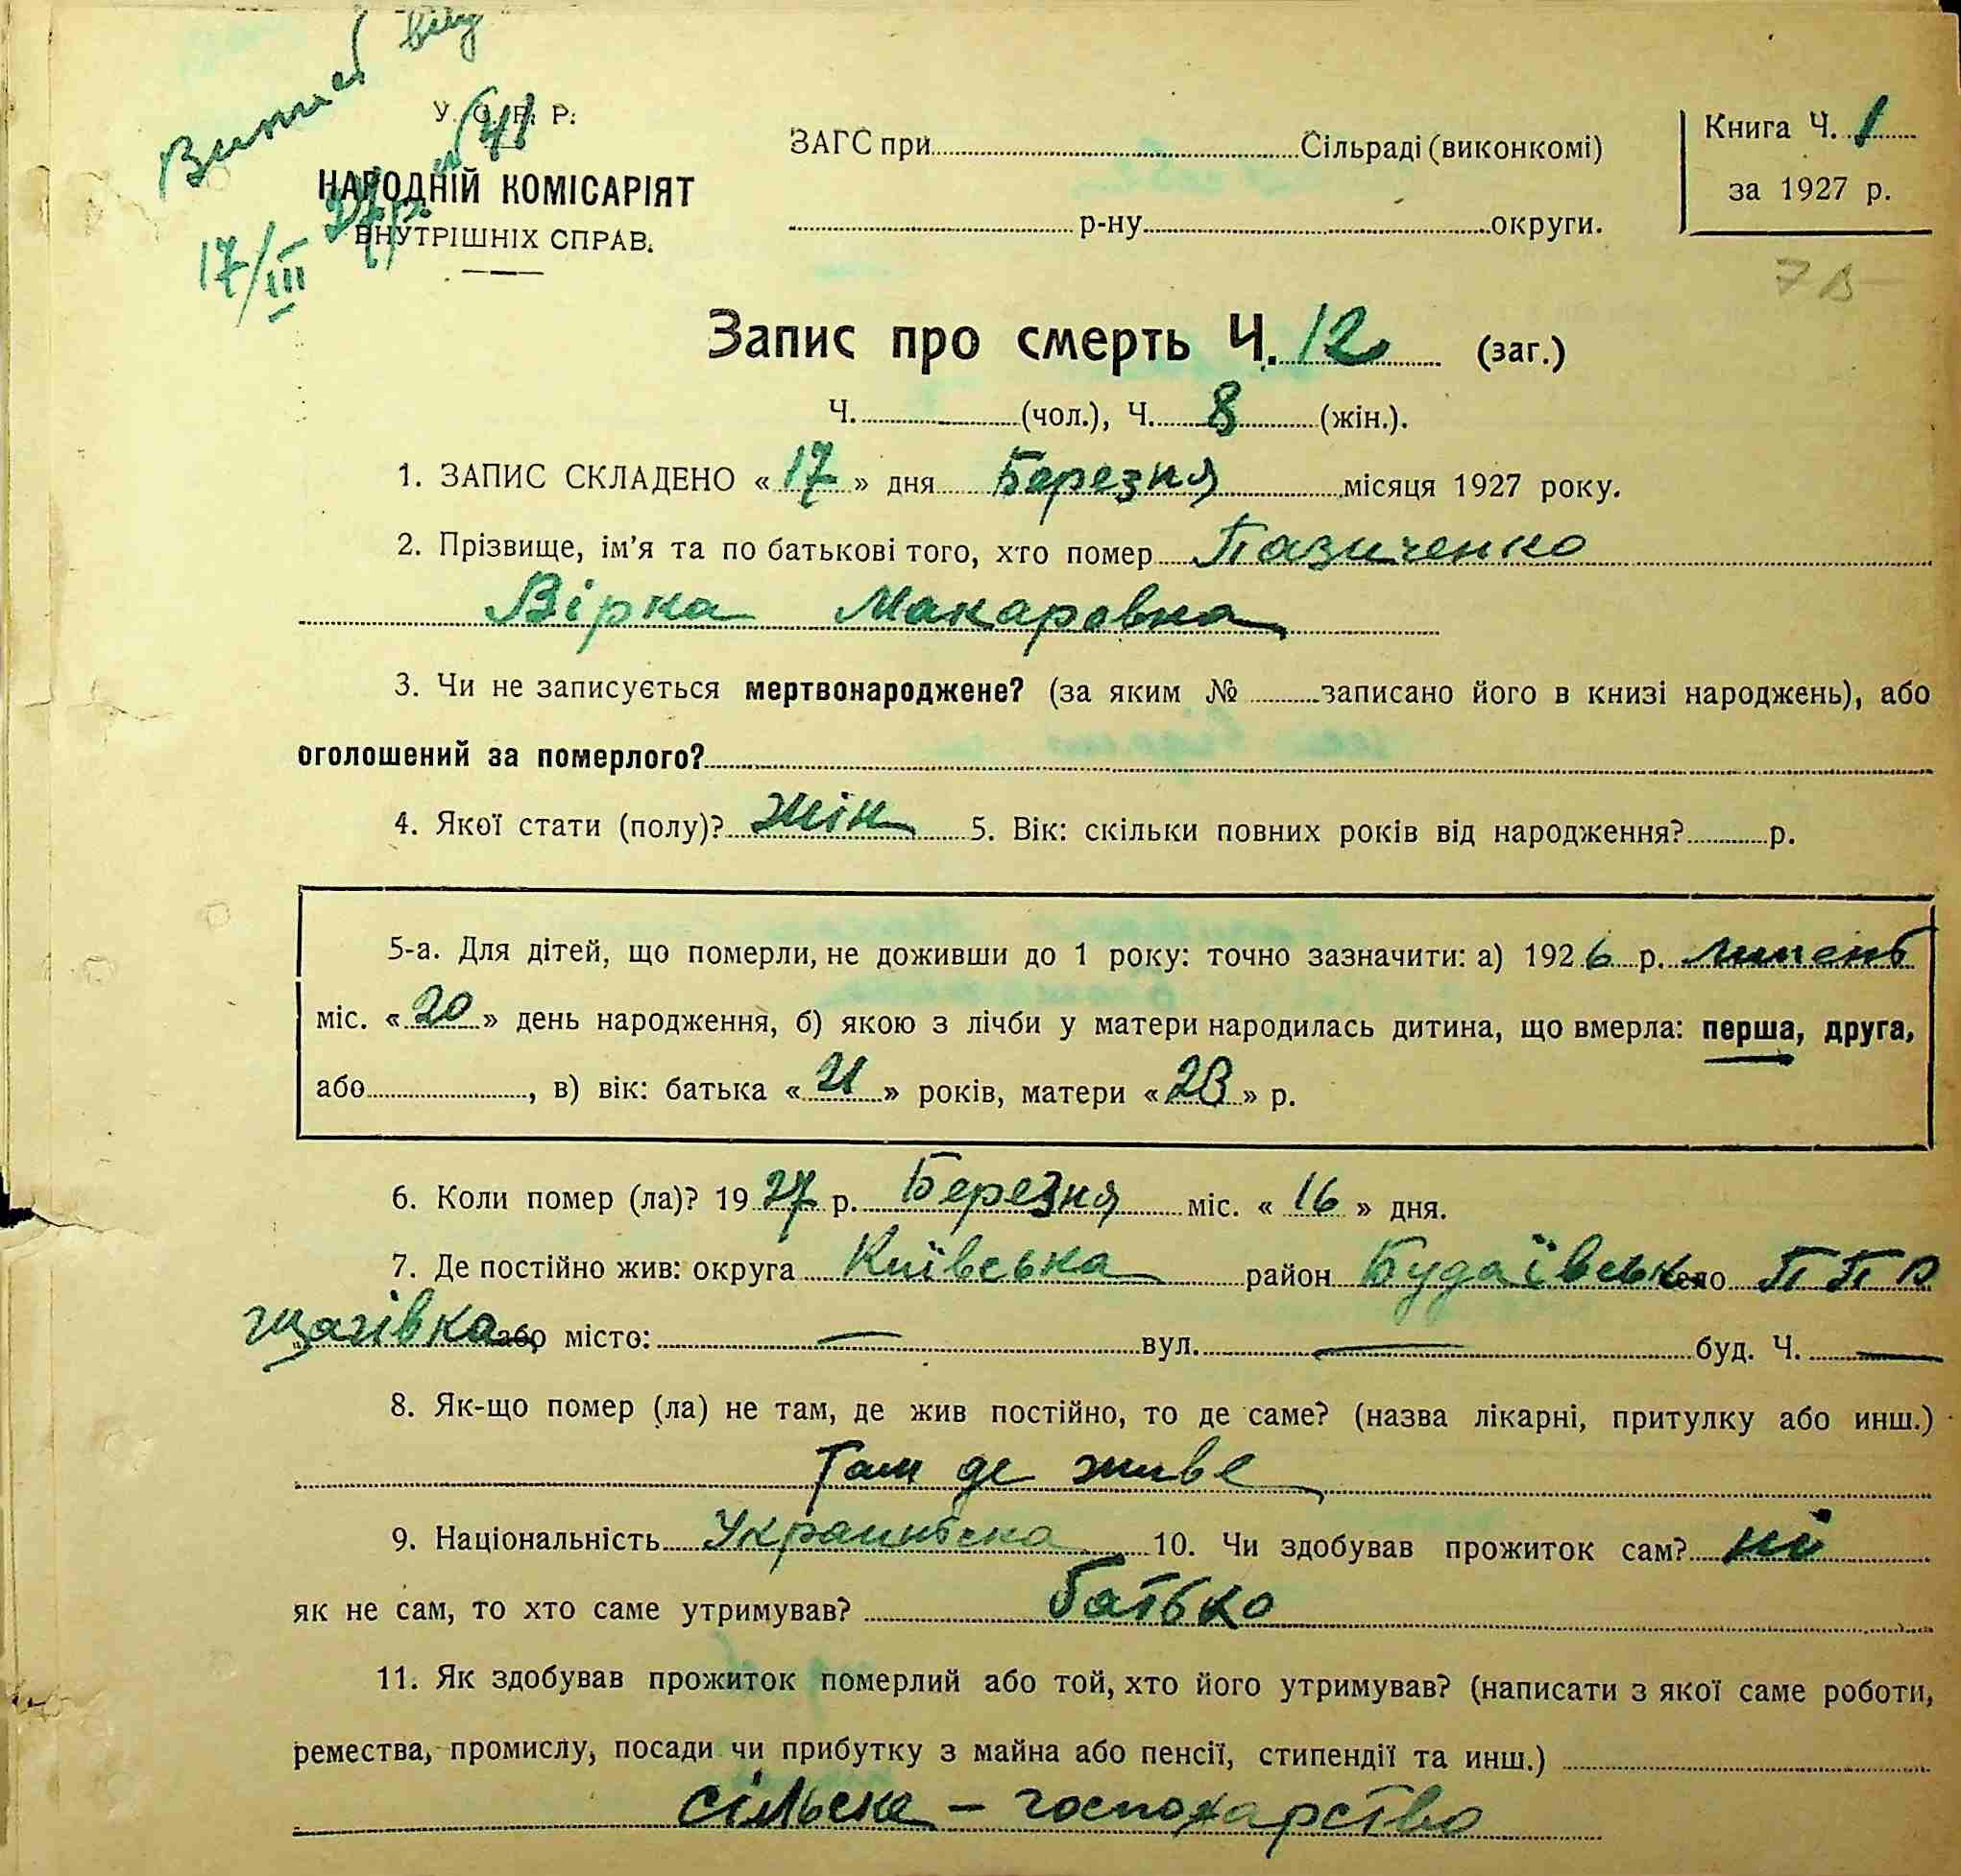 У. С. Р. Р.
НАРОДНІЙ КОМІСАРІЯТ
ВНУТРІШНІХ СПРАВ.
17/III 27 р.
ЗАГС при Сільраді (виконкомі)
р-ну округи.
Книга Ч. 1
за 1927 р.
Запис про смерть Ч. 12 (заг.)
Ч. (чол.), Ч. 8 (жін.).
1. ЗАПИС СКЛАДЕНО « 17 » дня Березня місяця 1927 року.
2. Прізвище, ім'я та по батькові того, хто помер Пазиченко
Вірка Макаровна
3. Чи не записується мертвонароджене? (за яким № записано його в книзі народжень), або
оголошений за померлого?
4. Якої стати (полу)? жін 5. Вік: скільки повних років від народження? р.
5-а. Для дітей, що померли, не доживши до 1 року: точно зазначити: а) 1926 р. липень
міс. « 20 » день народження, б) якою з лічби у матери народилась дитина, що вмерла: перша, друга,
або , в) вік: батька « 21 » років, матери « 23 » р.
6. Коли помер (ла)? 1927 р. Березня міс. « 16 » дня.
7. Де постійно жив: округа Київська район Будаївськ село П П Б
щагівка або місто: — вул. — буд. Ч. —
8. Як-що помер (ла) не там, де жив постійно, то де саме? (назва лікарні, притулку або инш.)
Там де живе
9. Національність Украинська 10. Чи здобував прожиток сам? ні
як не сам, то хто саме утримував? батько
11. Як здобував прожиток померлий або той, хто його утримував? (написати з якої саме роботи,
ремества, промислу, посади чи прибутку з майна або пенсії, стипендії та инш.)
сільське – господарство